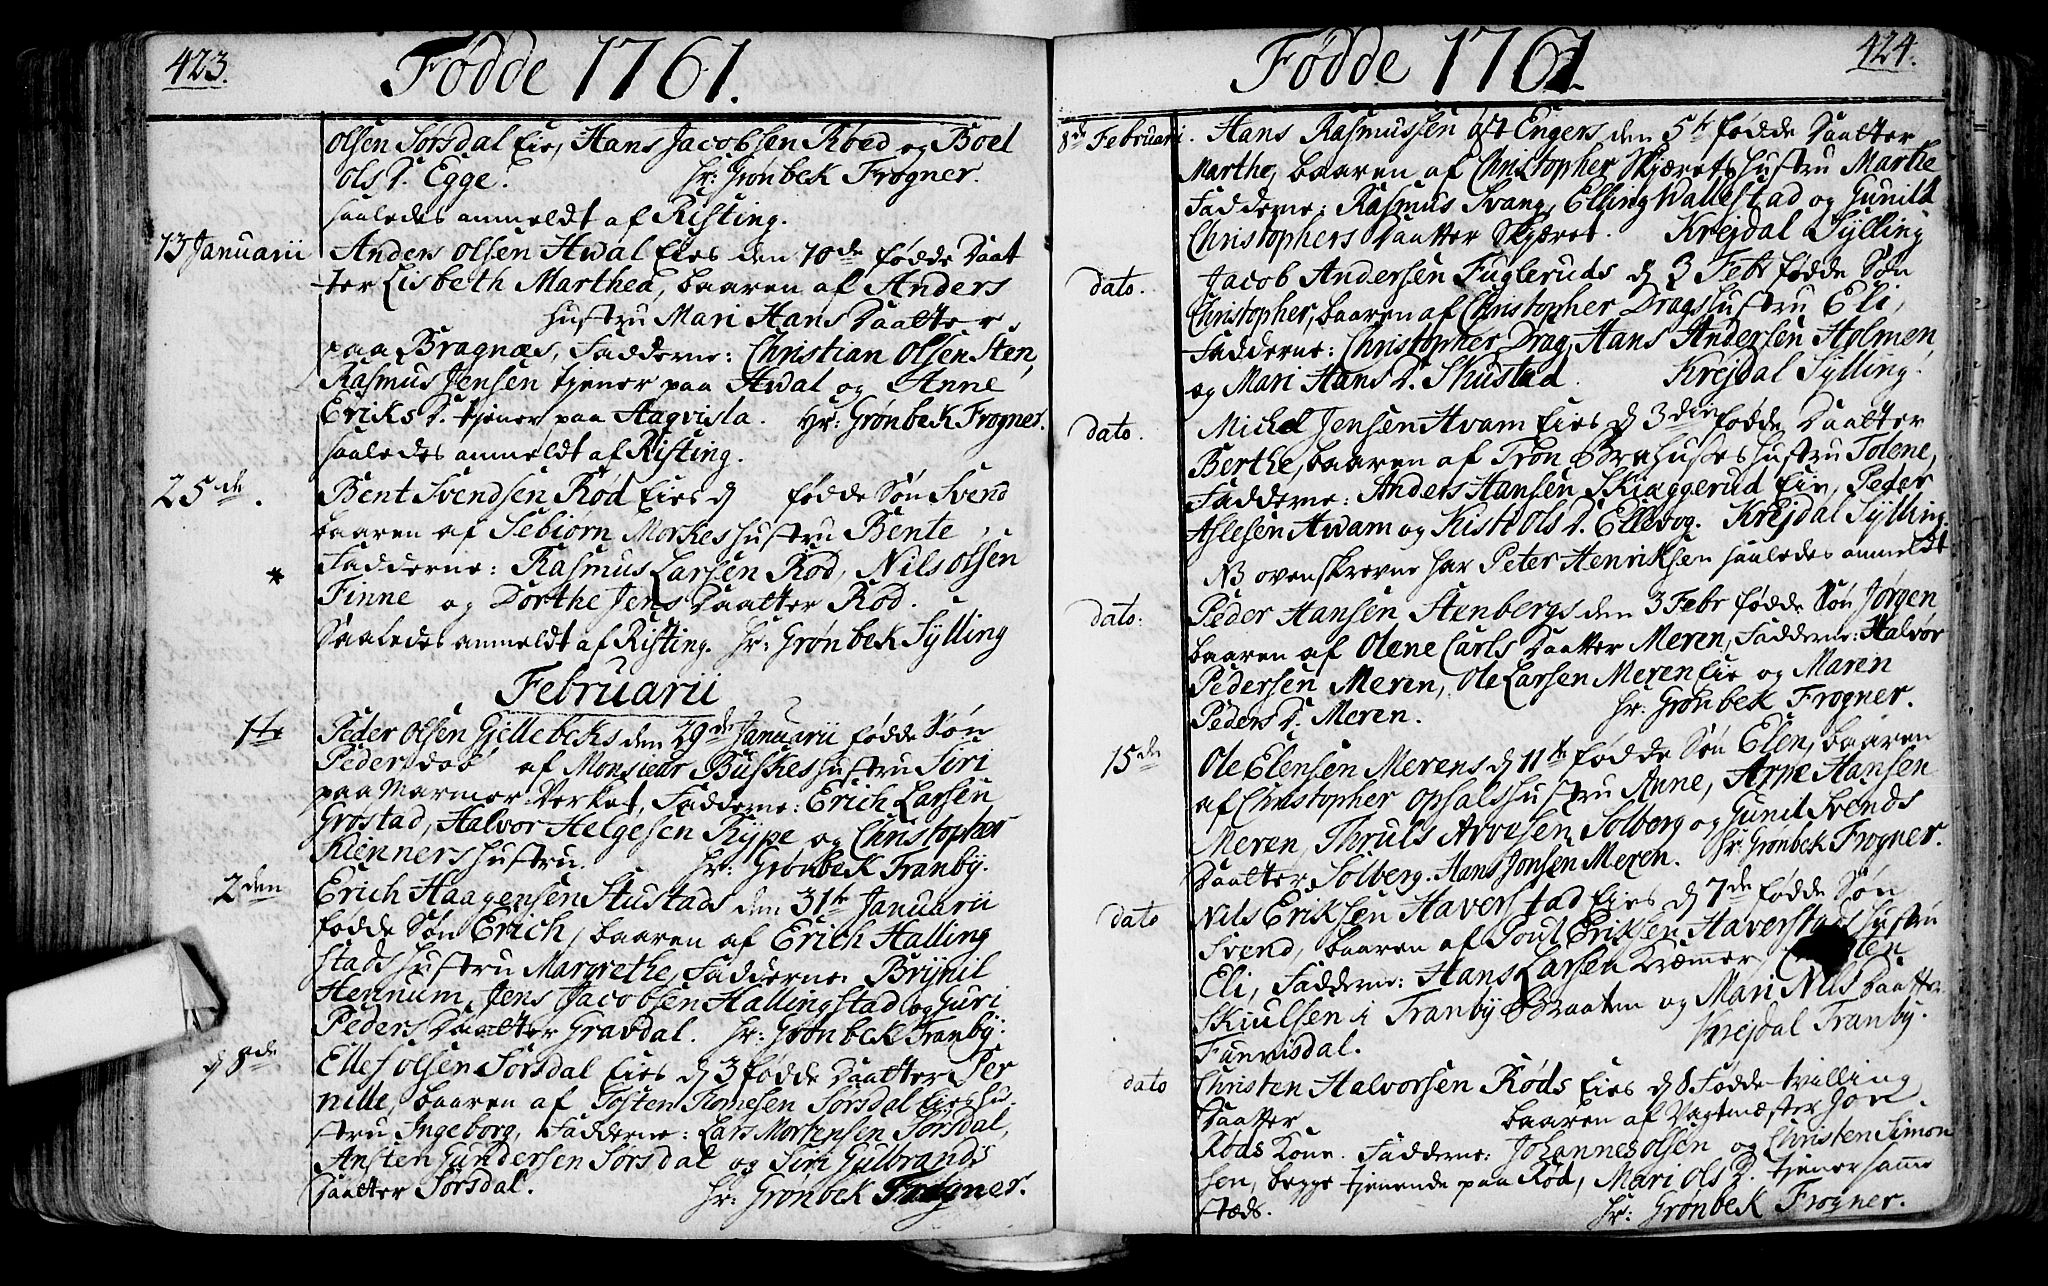 423.
Fødde 1761.
Olsen Sørsdal Eie, Hans Jacobsen Röed og Boel
Ols D. Egge. Hr: Grønbek Frogner.
saaledes anmeldt af Risting.
13 Januarii Anders Olsen Awal Eies den 10de fødde Daat
ter Lisbeth Marthea, baaren af Anders
Hustru Mari Hans Daatter,
paa Bragnæs, Fadderne: Christian Olsen Sten,
Rasmus Jensen tjener paa Awal og Anne
Eriks D. tjener paa Aaqvisla. Hr: Grønbek Frogner.
saaledes anmeldt af Risting.
25de. Bent Svendsen Rød Eies d fødde Søn Svend
baaren af Sebiørn Morkes Hustru Bente,
* Fadderne: Rasmus Larsen Röd, Nils Olsen
Finne og Dorthe Jens Daatter Röd.
Saaledes anmeldt af Risting. Hr: Grønbek Sylling
Februarii
1te Peder Olsen Gjellebeks den 29de Januarii fødde Søn
Peder døbt af Monsieur Buskes Hustru Siri
paa Marmor Verket, Fadderne: Erich Larsen
Grøstad, Halvor Helgesen Rype og Christopher
Kienners Hustru. Hr: Grønbek Tranby.
2den Erich Haagensen Stustads den 31te Januarii
fødde Søn Erich, baaren af Erich Halling
stads Hustru Margrethe, Fadderne: Brynil
Hennum, Jens Jacobsen Hallingstad og Guri
Peders Daatter Gravdal. Hr: Grønbek Tranby.
d 8de Ellef Olsen Sørsdal Eies d 3 fødde Daatter Per
nille, baaren af Tosten Romesen Sørsdal Eies Hu-
stru Ingeborg, Fadderne: Lars Mortensen Sørsdal,
Ansten Gundersen Sørsdal og Siri Gulbrands
Daatter Sørsdal. Hr: Grønbek Frogner.
424.
Fødde 1761.
8de Februari. Hans Rasmussen öst Engers den 5te fødde Daatter
Marthe, baaren af Christopher Skjærets Hustru Marthe
Fadderne: Rasmus Svang, Elling Wallestad og Gunild
Christophers Daatter Skjæret. Krejdal Sylling
dato. Jacob Andersen Fugleruds d 3 Febr fødde Søn
Christopher, baaren af Christopher Drags Hustru Eli,
Fadderne: Christopher Drag, Hans Andersen Holmen
og Mari Hans D. Skustad. Krejdal Sylling.
dato. Michel Jensen Hvam Eies d 3die fødde Daatter
Berthe, baaren af Tron Brahuses Hustru Tolene,
Fadderne: Anders Hansen Skiaggerud Eie, Peder
Aslesen Awam og Kisti Ols D. Ellevog. Krejdal Sylling.
NB ovenskrevne har Peter Henriksen saaledes anmeldt
dato: Peder Hansen Stenbergs den 3 Febr fødde Søn Jørgen
baaren af Olene Carls Daatter Meren, Fadderne: Halvor
Pedersen Meren, Ole Larsen Meren Eie og Maren
Peders D. Meren. Hr: Grønbek Frogner.
15de Ole Elensen Merens d 11te fødde Søn Elen, baaren
af Christopher Opsals Hustru Anne, Arne Hansen
Meren, Thruls Arvesen Solberg og Gunil Svends
Daatter Solberg. Hans Jonsen Meren. Hr: Grønbek Frogner.
dato Nils Eriksen Haverstad Eies d 7de fødde Søn
Svend, baaren af Poul Eriksen Haverstads Hustru
Eli, Fadderne: Hans Larsen Kræmer,
Skiulsen i Tranby Braaten og Mari Nils Daatter
Funnisdal. Krejdal Tranby.
dato Christen Halvorsen Røds Eies d 8 Fødde tvilling
Daatter baaren af Vagtmæster Jon
Røds Kone. Fadderne: Johannes Olsen og Christen Simon
sen, begge tjenende paa Röd, Mari Ols D. tjener samme
steds. Hr: Grønbek Frogner.